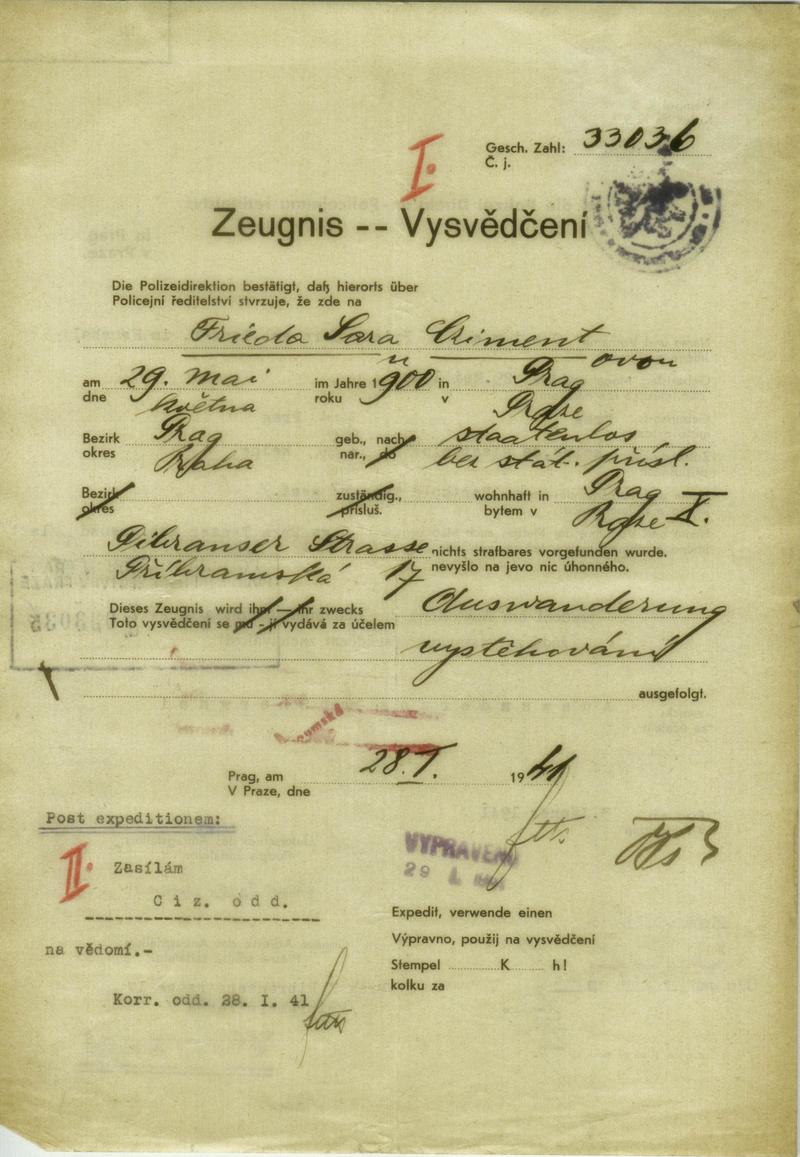 Gesch. Zahl: 33036
Č. j.
I.
Zeugnis -- Vysvědčení
Die Polizeidirektion bestätigt, daß hierorts über
Policejní ředitelství stvrzuje, že zde na
Frieda Sara Criment
ovou
am 29. Mai im Jahre 1900 in Prag
dne května roku v Praze
Bezirk Prag geb., nach staatenlos
okres Praha nar., do bez stát. přísl.
Bezirk zuständig., wohnhaft in Prag
okres přísluš. bytem v Praze X.
Pibranser Strasse nichts strafbares vorgefunden wurde.
Příbramská 17 nevyšlo na jevo nic úhonného.
Dieses Zeugnis wird ihm – ihr zwecks Auswanderung
Toto vysvědčení se mu - jí vydává za účelem
vystěhování
ausgefolgt.
Prag, am 28. I. 1941
V Praze, dne
Post expeditionem:
VYPRAVENO
29 I.
II.
Zasílám
Ciz. odd.
Expedit, verwende einen
Výpravno, použij na vysvědčení
na vědomí.-
Stempel K h!
kolku za
Korr. odd. 28. I. 41